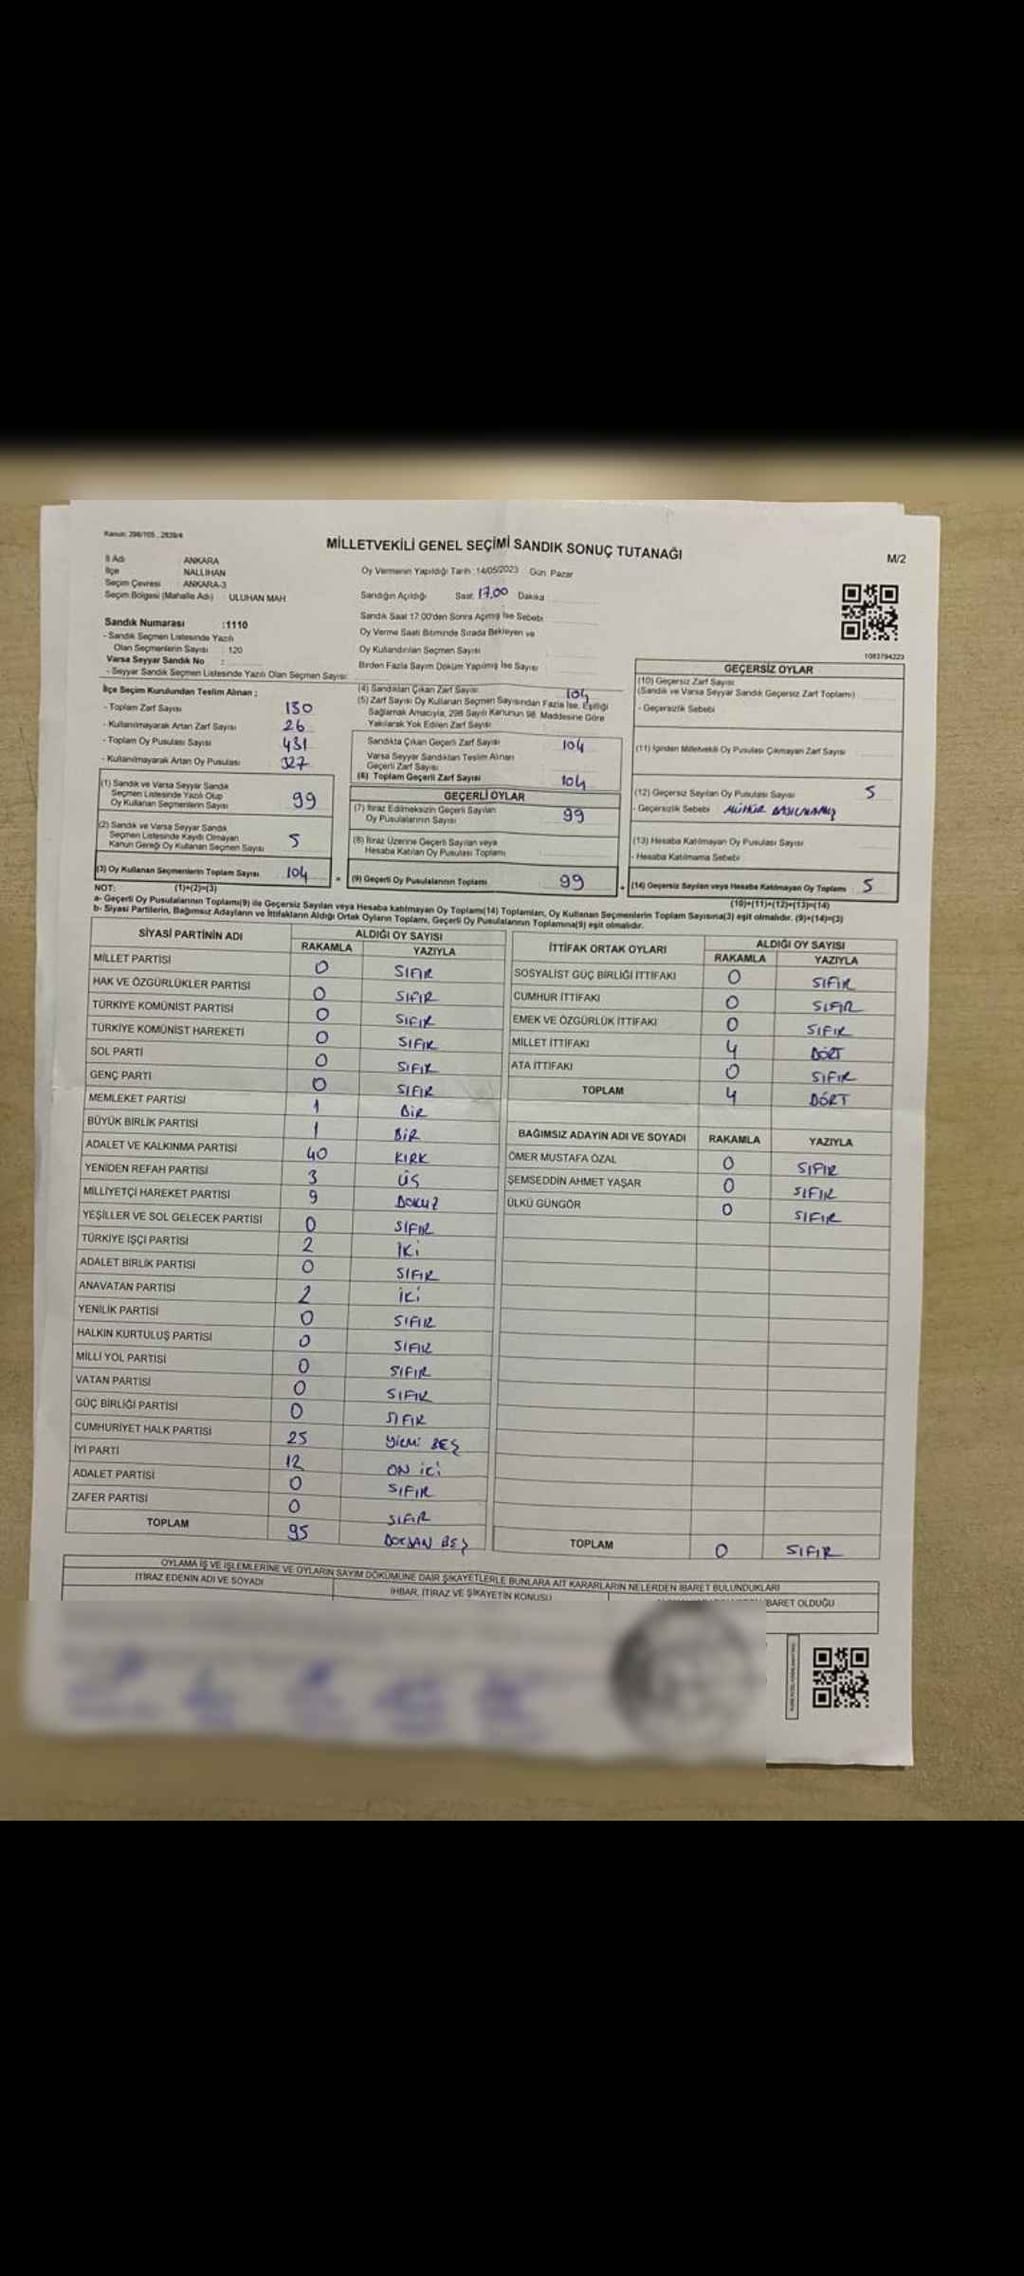 Kanun: 298/105 , 2839/4
MİLLETVEKİLİ GENEL SEÇİMİ SANDIK SONUÇ TUTANAĞI
M/2
İl Adı ANKARA
İlçe NALLIHAN
Seçim Çevresi ANKARA-3
Seçim Bölgesi (Mahalle Adı) ULUHAN MAH
Oy Vermenin Yapıldığı Tarih :14/05/2023 Gün: Pazar
Sandığın Açıldığı Saat: 17.00 Dakika
Sandık Saat 17:00'den Sonra Açılmış İse Sebebi
Oy Verme Saati Bitiminde Sırada Bekleyen ve
Oy Kullandırılan Seçmen Sayısı
Birden Fazla Sayım Döküm Yapılmış İse Sayısı
Sandık Numarası :1110
- Sandık Seçmen Listesinde Yazılı
Olan Seçmenlerin Sayısı : 120
Varsa Seyyar Sandık No :
- Seyyar Sandık Seçmen Listesinde Yazılı Olan Seçmen Sayısı:
1083794223
İlçe Seçim Kurulundan Teslim Alınan ;
- Toplam Zarf Sayısı 130
- Kullanılmayarak Artan Zarf Sayısı 26
- Toplam Oy Pusulası Sayısı 431
- Kullanılmayarak Artan Oy Pusulası 327
(1) Sandık ve Varsa Seyyar Sandık
Seçmen Listesinde Yazılı Olup
Oy Kullanan Seçmenlerin Sayısı 99
(2) Sandık ve Varsa Seyyar Sandık
Seçmen Listesinde Kaydı Olmayan
Kanun Gereği Oy Kullanan Seçmen Sayısı 5
(3) Oy Kullanan Seçmenlerin Toplam Sayısı 104
(4) Sandıktan Çıkan Zarf Sayısı 104
(5) Zarf Sayısı Oy Kullanan Seçmen Sayısından Fazla İse, Eşitliği
Sağlamak Amacıyla, 298 Sayılı Kanunun 98. Maddesine Göre
Yakılarak Yok Edilen Zarf Sayısı
Sandıkta Çıkan Geçerli Zarf Sayısı 104
Varsa Seyyar Sandıktan Teslim Alınan
Geçerli Zarf Sayısı
(6) Toplam Geçerli Zarf Sayısı 104
GEÇERLİ OYLAR
(7) İtiraz Edilmeksizin Geçerli Sayılan
Oy Pusulalarının Sayısı 99
(8) İtiraz Üzerine Geçerli Sayılan veya
Hesaba Katılan Oy Pusulası Toplamı
(9) Geçerli Oy Pusulalarının Toplamı 99
GEÇERSİZ OYLAR
(10) Geçersiz Zarf Sayısı
(Sandık ve Varsa Seyyar Sandık Geçersiz Zarf Toplamı)
- Geçersizlik Sebebi
(11) İçinden Milletvekili Oy Pusulası Çıkmayan Zarf Sayısı
(12) Geçersiz Sayılan Oy Pusulası Sayısı 5
- Geçersizlik Sebebi MÜHÜR BASILMAMIŞ
(13) Hesaba Katılmayan Oy Pusulası Sayısı
- Hesaba Katılmama Sebebi
(14) Geçersiz Sayılan veya Hesaba Katılmayan Oy Toplamı 5
NOT: (1)+(2)=(3)
(10)+(11)+(12)+(13)=(14)
a- Geçerli Oy Pusulalarının Toplamı(9) ile Geçersiz Sayılan veya Hesaba katılmayan Oy Toplamı(14) Toplamları, Oy Kullanan Seçmenlerin Toplam Sayısına(3) eşit olmalıdır. (9)+(14)=(3)
b- Siyasi Partilerin, Bağımsız Adayların ve İttifakların Aldığı Ortak Oyların Toplamı, Geçerli Oy Pusulalarının Toplamına(9) eşit olmalıdır.
SİYASİ PARTİNİN ADI ALDIĞI OY SAYISI
RAKAMLA YAZIYLA
MİLLET PARTİSİ 0 SIFIR
HAK VE ÖZGÜRLÜKLER PARTİSİ 0 SIFIR
TÜRKİYE KOMÜNİST PARTİSİ 0 SIFIR
TÜRKİYE KOMÜNİST HAREKETİ 0 SIFIR
SOL PARTİ 0 SIFIR
GENÇ PARTİ 0 SIFIR
MEMLEKET PARTİSİ 1 BİR
BÜYÜK BİRLİK PARTİSİ 1 BİR
ADALET VE KALKINMA PARTİSİ 40 KIRK
YENİDEN REFAH PARTİSİ 3 ÜÇ
MİLLİYETÇİ HAREKET PARTİSİ 9 DOKUZ
YEŞİLLER VE SOL GELECEK PARTİSİ 0 SIFIR
TÜRKİYE İŞÇİ PARTİSİ 2 İKİ
ADALET BİRLİK PARTİSİ 0 SIFIR
ANAVATAN PARTİSİ 2 İKİ
YENİLİK PARTİSİ 0 SIFIR
HALKIN KURTULUŞ PARTİSİ 0 SIFIR
MİLLİ YOL PARTİSİ 0 SIFIR
VATAN PARTİSİ 0 SIFIR
GÜÇ BİRLİĞİ PARTİSİ 0 SIFIR
CUMHURİYET HALK PARTİSİ 25 YİRMİ BEŞ
İYİ PARTİ 12 ON İKİ
ADALET PARTİSİ 0 SIFIR
ZAFER PARTİSİ 0 SIFIR
TOPLAM 95 DOKSAN BEŞ
İTTİFAK ORTAK OYLARI ALDIĞI OY SAYISI
RAKAMLA YAZIYLA
SOSYALİST GÜÇ BİRLİĞİ İTTİFAKI 0 SIFIR
CUMHUR İTTİFAKI 0 SIFIR
EMEK VE ÖZGÜRLÜK İTTİFAKI 0 SIFIR
MİLLET İTTİFAKI 4 DÖRT
ATA İTTİFAKI 0 SIFIR
TOPLAM 4 DÖRT
BAĞIMSIZ ADAYIN ADI VE SOYADI RAKAMLA YAZIYLA
ÖMER MUSTAFA ÖZAL 0 SIFIR
ŞEMSEDDİN AHMET YAŞAR 0 SIFIR
ÜLKÜ GÜNGÖR 0 SIFIR
TOPLAM 0 SIFIR
OYLAMA İŞ VE İŞLEMLERİNE VE OYLARIN SAYIM DÖKÜMÜNE DAİR ŞİKAYETLERLE BUNLARA AİT KARARLARIN NELERDEN İBARET BULUNDUKLARI
İTİRAZ EDENİN ADI VE SOYADI
İHBAR, İTİRAZ VE ŞİKAYETİN KONUSU
İBARET OLDUĞU